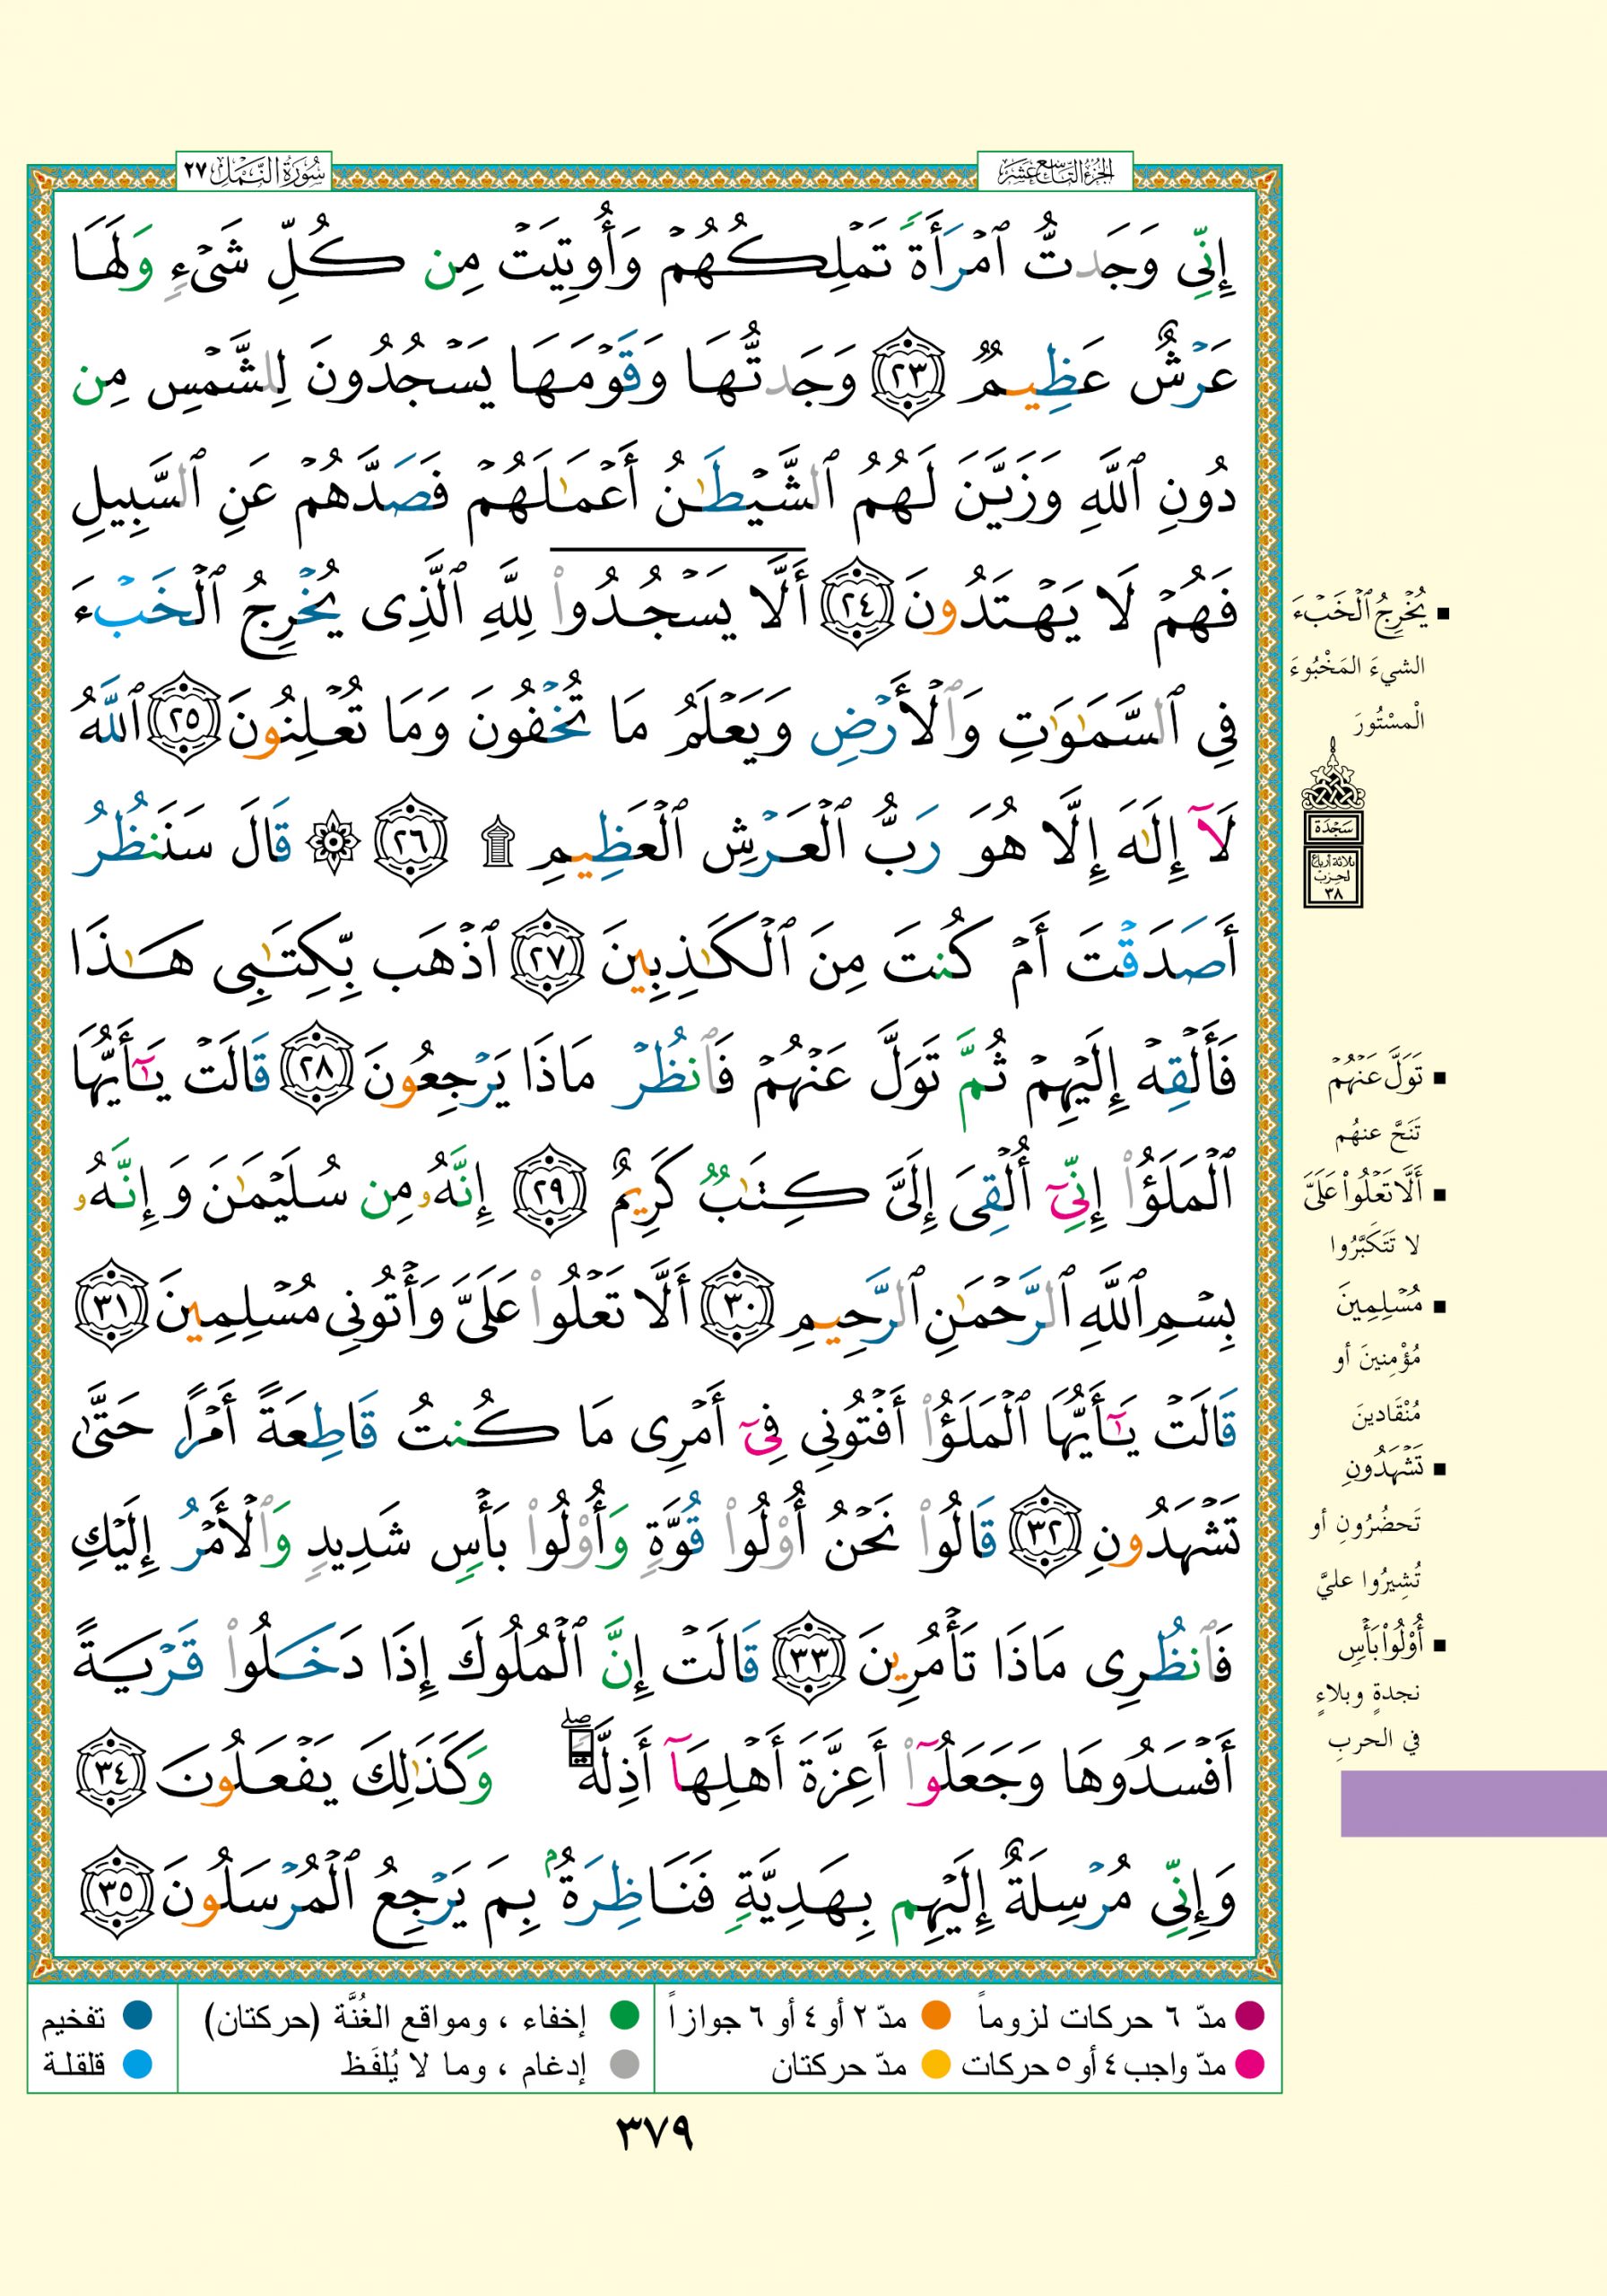 الجزء التاسع عشر
سورة النمل ٢٧
إِنِّي وَجَدتُّ ٱمْرَأَةً تَمْلِكُهُمْ وَأُوتِيَتْ مِن كُلِّ شَىْءٍ وَلَهَا
عَرْشٌ عَظِيمٌ ﴿٢٣﴾ وَجَدتُّهَا وَقَوْمَهَا يَسْجُدُونَ لِلشَّمْسِ مِن
دُونِ ٱللَّهِ وَزَيَّنَ لَهُمُ ٱلشَّيْطَٰنُ أَعْمَٰلَهُمْ فَصَدَّهُمْ عَنِ ٱلسَّبِيلِ
فَهُمْ لَا يَهْتَدُونَ ﴿٢٤﴾ أَلَّا يَسْجُدُوا۟ لِلَّهِ ٱلَّذِى يُخْرِجُ ٱلْخَبْءَ
فِى ٱلسَّمَٰوَٰتِ وَٱلْأَرْضِ وَيَعْلَمُ مَا تُخْفُونَ وَمَا تُعْلِنُونَ ﴿٢٥﴾ ٱللَّهُ
لَآ إِلَٰهَ إِلَّا هُوَ رَبُّ ٱلْعَرْشِ ٱلْعَظِيمِ ۩ ﴿٢٦﴾ ۞ قَالَ سَنَنظُرُ
أَصَدَقْتَ أَمْ كُنتَ مِنَ ٱلْكَٰذِبِينَ ﴿٢٧﴾ ٱذْهَب بِّكِتَٰبِى هَٰذَا
فَأَلْقِهْ إِلَيْهِمْ ثُمَّ تَوَلَّ عَنْهُمْ فَٱنظُرْ مَاذَا يَرْجِعُونَ ﴿٢٨﴾ قَالَتْ يَٰٓأَيُّهَا
ٱلْمَلَؤُا۟ إِنِّىٓ أُلْقِىَ إِلَىَّ كِتَٰبٌ كَرِيمٌ ﴿٢٩﴾ إِنَّهُۥ مِن سُلَيْمَٰنَ وَإِنَّهُۥ
بِسْمِ ٱللَّهِ ٱلرَّحْمَٰنِ ٱلرَّحِيمِ ﴿٣٠﴾ أَلَّا تَعْلُوا۟ عَلَىَّ وَأْتُونِى مُسْلِمِينَ ﴿٣١﴾
قَالَتْ يَٰٓأَيُّهَا ٱلْمَلَؤُا۟ أَفْتُونِى فِىٓ أَمْرِى مَا كُنتُ قَاطِعَةً أَمْرًا حَتَّىٰ
تَشْهَدُونِ ﴿٣٢﴾ قَالُوا۟ نَحْنُ أُو۟لُوا۟ قُوَّةٍ وَأُو۟لُوا۟ بَأْسٍ شَدِيدٍ وَٱلْأَمْرُ إِلَيْكِ
فَٱنظُرِى مَاذَا تَأْمُرِينَ ﴿٣٣﴾ قَالَتْ إِنَّ ٱلْمُلُوكَ إِذَا دَخَلُوا۟ قَرْيَةً
أَفْسَدُوهَا وَجَعَلُوٓا۟ أَعِزَّةَ أَهْلِهَآ أَذِلَّةً ۖ وَكَذَٰلِكَ يَفْعَلُونَ ﴿٣٤﴾
وَإِنِّى مُرْسِلَةٌ إِلَيْهِم بِهَدِيَّةٍ فَنَاظِرَةٌۢ بِمَ يَرْجِعُ ٱلْمُرْسَلُونَ ﴿٣٥﴾
▪ يُخْرِجُ ٱلْخَبْءَ
الشيءَ المَخْبُوءَ
الْمسْتُورَ
سَجْدَة
ثلاثة أرباع
لحزب
٣٨
▪ تَوَلَّ عَنْهُمْ
تَنَحَّ عنهُم
▪ أَلَّا تَعْلُوا۟ عَلَىَّ
لا تَتَكَبَّرُوا
▪ مُسْلِمِينَ
مُؤْمِنينَ أو
مُنْقَادينَ
▪ تَشْهَدُونِ
تَحضُرُونِ أو
تُشِيرُوا عليَّ
▪ أُو۟لُوا۟ بَأْسٍ
نجدةٍ وبلاءٍ
في الحربِ
مدّ ٦ حركات لزوماً
مدّ ٢ أو ٤ أو ٦ جوازاً
إخفاء ، ومواقع الغُنَّة (حركتان)
تفخيم
مدّ واجب ٤ أو ٥ حركات
مدّ حركتان
إدغام ، وما لا يُلفَظ
قلقلة
٣٧٩